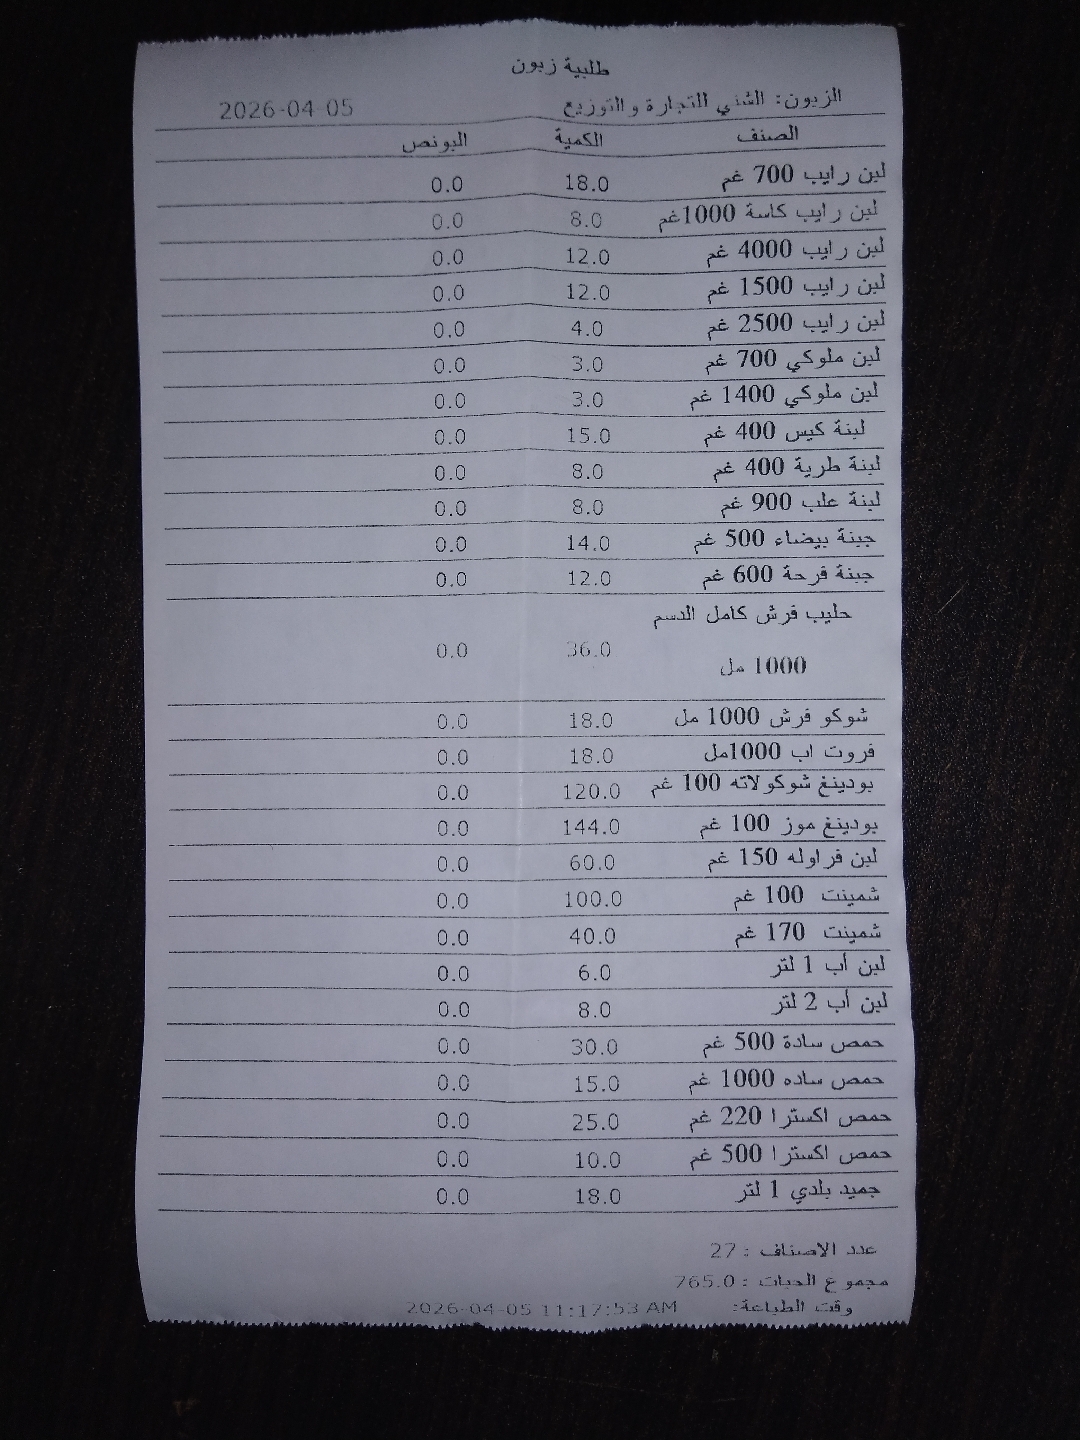 طلبية زبون
الزبون: الشني للتجارة والتوزيع 2026-04-05
الصنف الكمية البونص
لبن رايب 700 غم 18.0 0.0
لبن رايب كاسة 1000غم 8.0 0.0
لبن رايب 4000 غم 12.0 0.0
لبن رايب 1500 غم 12.0 0.0
لبن رايب 2500 غم 4.0 0.0
لبن ملوكي 700 غم 3.0 0.0
لبن ملوكي 1400 غم 3.0 0.0
لبنة كيس 400 غم 15.0 0.0
لبنة طرية 400 غم 8.0 0.0
لبنة علب 900 غم 8.0 0.0
جبنة بيضاء 500 غم 14.0 0.0
جبنة قرحة 600 غم 12.0 0.0
حليب فرش كامل الدسم
1000 مل 36.0 0.0
شوكو فرش 1000 مل 18.0 0.0
فروت اب 1000مل 18.0 0.0
بودينغ شوكولاته 100 غم 120.0 0.0
بودينغ موز 100 غم 144.0 0.0
لبن فراوله 150 غم 60.0 0.0
شمينت 100 غم 100.0 0.0
شمينت 170 غم 40.0 0.0
لبن أب 1 لتر 6.0 0.0
لبن أب 2 لتر 8.0 0.0
حمص سادة 500 غم 30.0 0.0
حمص ساده 1000 غم 15.0 0.0
حمص اكسترا 220 غم 25.0 0.0
حمص اكسترا 500 غم 10.0 0.0
جميد بلدي 1 لتر 18.0 0.0
عدد الاصناف : 27
مجموع الحبات : 765.0
وقت الطباعة: 2026-04-05 11:17:53 AM